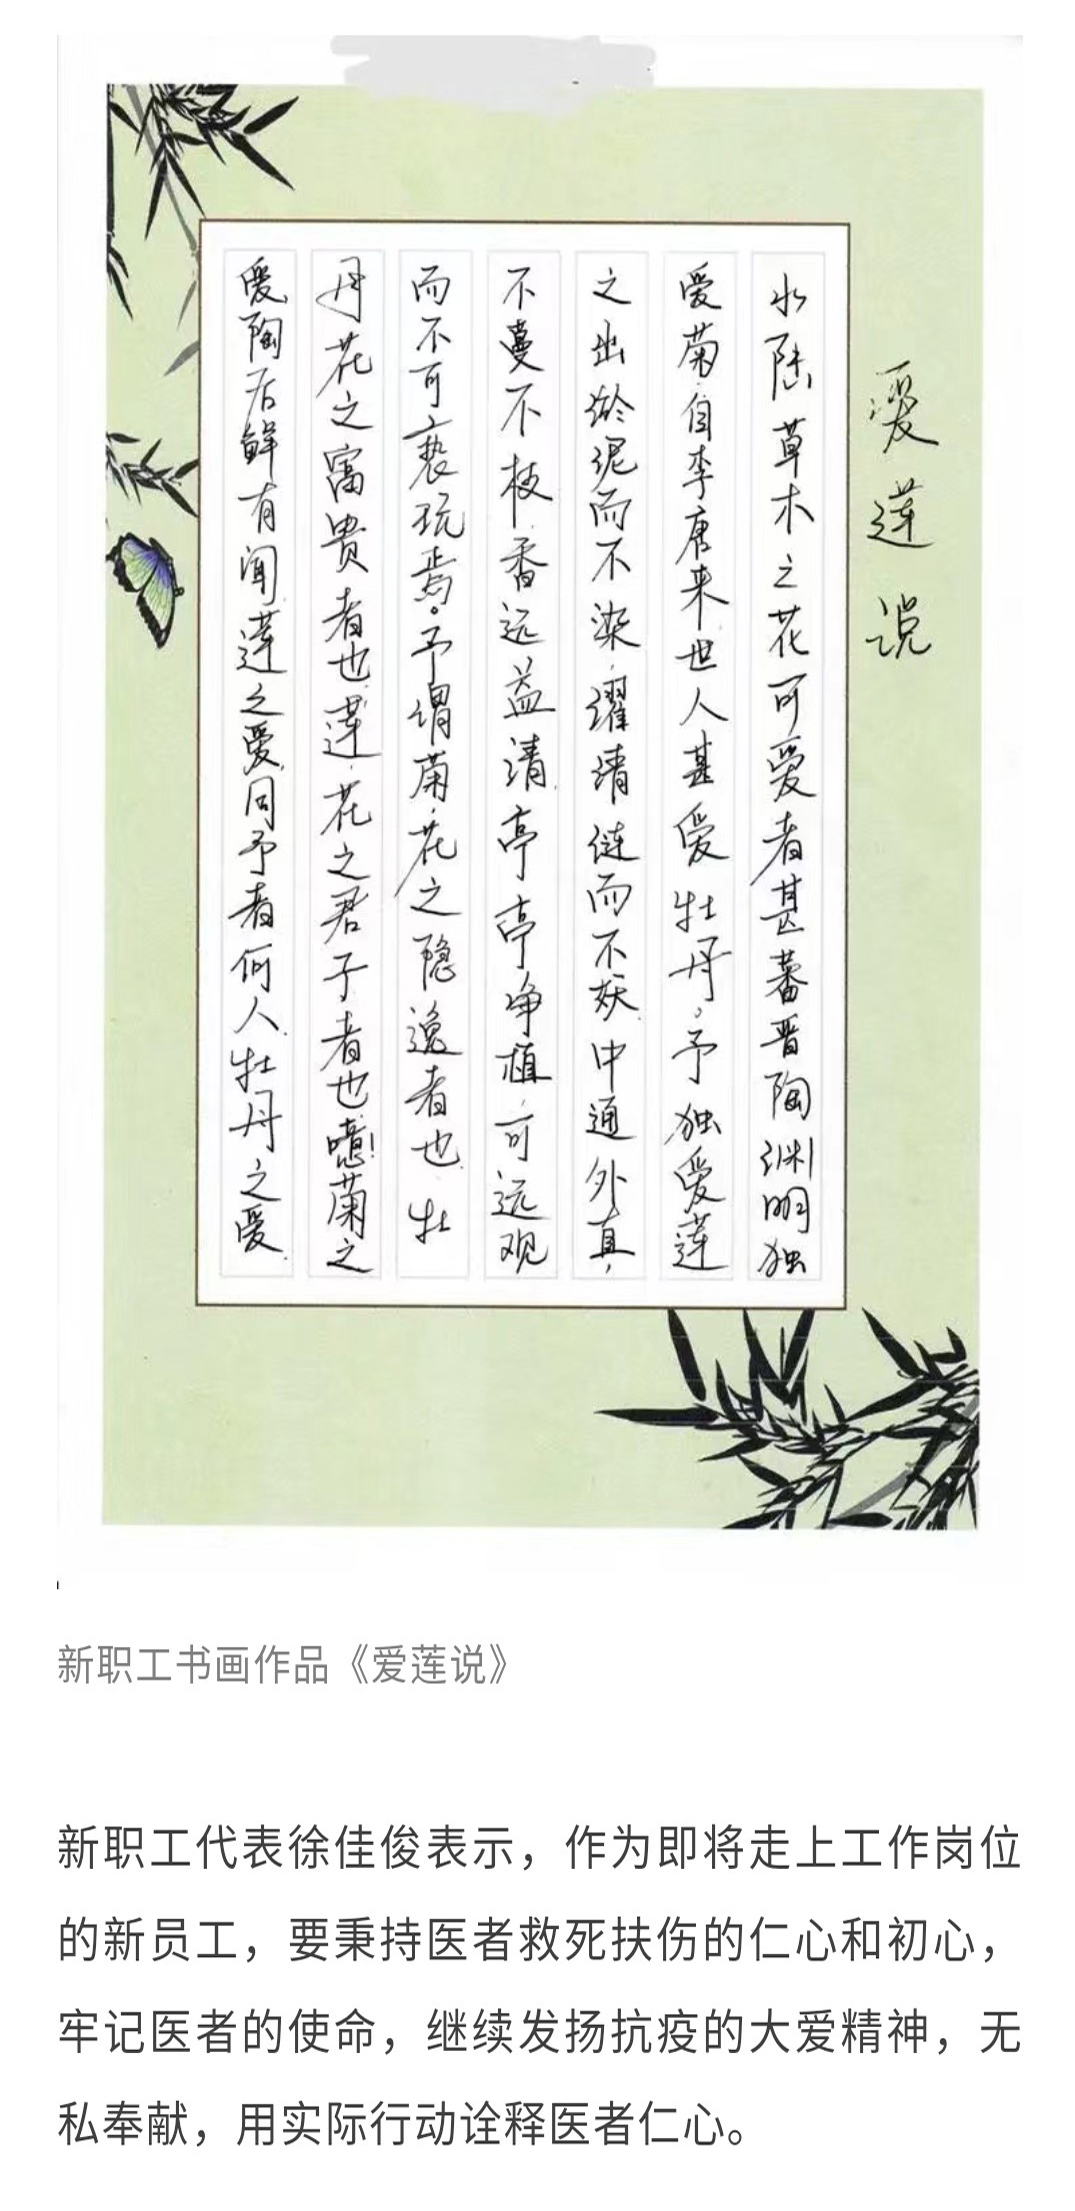 爱莲说
水陆草木之花可爱者甚蕃晋陶渊明独
爱菊自李唐来世人甚爱牡丹。予独爱莲
之出淤泥而不染,濯清涟而不妖中通外直,
不蔓不枝,香远益清,亭亭净植,可远观
而不可亵玩焉。予谓菊,花之隐逸者也牡
丹花之富贵者也莲,花之君子者也噫!菊之
爱陶后鲜有闻莲之爱,同予者何人牡丹之爱
新职工书画作品《爱莲说》
新职工代表徐佳俊表示,作为即将走上工作岗位
的新员工,要秉持医者救死扶伤的仁心和初心,
牢记医者的使命,继续发扬抗疫的大爱精神,无
私奉献,用实际行动诠释医者仁心。